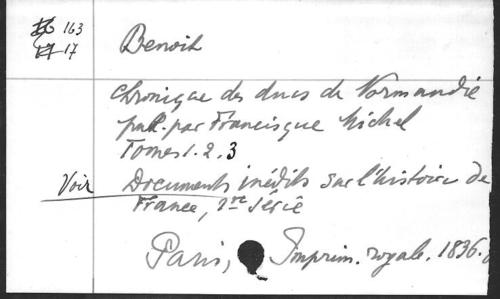 163
17
Benoit
Chronique des ducs de Normandie
publ. par Francisque Michel
Tomes 1. 2. 3
Voir Documents inédits sur l'histoire de
France, 1re série
Paris, Imprim. royale. 1836.